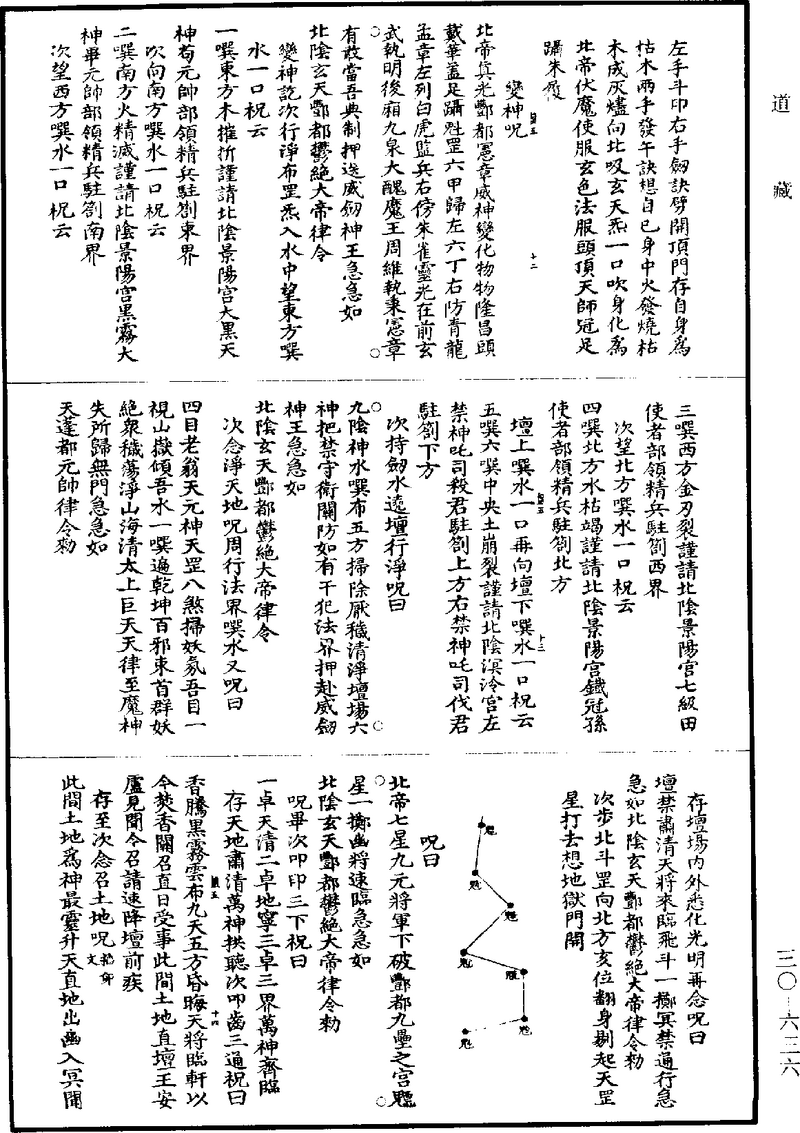 道藏
左手斗印右手劒訣劈開頂門存自身爲
枯木兩手發午訣想自已身中火發燒枯
木成灰燼向北吸玄天炁一口吹身化爲
北帝伏魔使服玄色法服頭頂天師冠足
躡朱履
變神呪
北帝真光酆都憲章威神變化物物隆昌頭
戴華蓋足躡魁罡六甲歸左六丁右防青龍
孟章左列白虎監兵右傍朱雀靈光在前玄
武執明後廂九泉大醜魔王周維執秉憲章
有敢當吾典制押送威劒神王急急如
北陰玄天酆都鬱絕大帝律令
變神訖次行淨布罡炁入水中望東方噀
水一口祝云
一噀東方木摧折謹請北陰景陽宫大黑天
神苟元帥部領精兵駐劄東界
次向南方噀水一口祝云
二噀南方火精滅謹請北陰景陽宫黑霧大
神畢元帥部領精兵駐劄南界
次望西方噀水一口祝云
三噀西方金刃裂謹請北陰景陽宫七級田
使者部領精兵駐劄西界
次望北方噀水一口祝云
四噀北方水枯竭謹請北陰景陽宫鐵冠孫
使者部領精兵駐劄北方
壇上噀水一口再向壇下噀水一口祝云
五噀六噀中央土崩裂謹請北陰溟泠宫左
禁神吒司殺君駐劄上方右禁神吒司伐君
駐劄下方
次持劒水遶壇行淨呪曰
九陰神水噀布五方掃除厭穢清淨壇場六
神把禁守衛關防如有干犯法界押赴威劒
神王急急如
北陰玄天酆都鬱絕大帝律令
次念淨天地呪周行法界噀水又呪曰
四目老翁天元神天罡八煞掃妖氛吾目一
視山嶽傾吾水一噀遍乾坤百邪束首群妖
絕衆穢蕩淨山海清太上巨天天律至魔神
失所歸無門急急如
天蓬都元帥律令勑
存壇場内外悉化光明再念呪曰
壇禁肅清天將來臨飛斗一擲冥禁通行急
急如北陰玄天酆都鬱絕大帝律令勑
次步北斗罡向北方亥位翻身剔起天罡
星打去想地獄門開
呪曰
北帝七星九元將軍下破酆都九壘之宫魒
星一擲幽將速臨急急如
北陰玄天酆都鬱絕大帝律令勑
呪畢次叩印三下祝曰
一卓天清二卓地寧三卓三界萬神齊臨
存天地肅清萬神拱聽次叩齒三通祝曰
香騰黑霧雲布九天五方昏晦天將臨軒以
今焚香關召直日受事此間土地直壇王安
盧見聞令召請速降壇前疾
存至次念召土地呪
此間土地爲神最靈升天直地出幽入冥聞
三〇—六二六